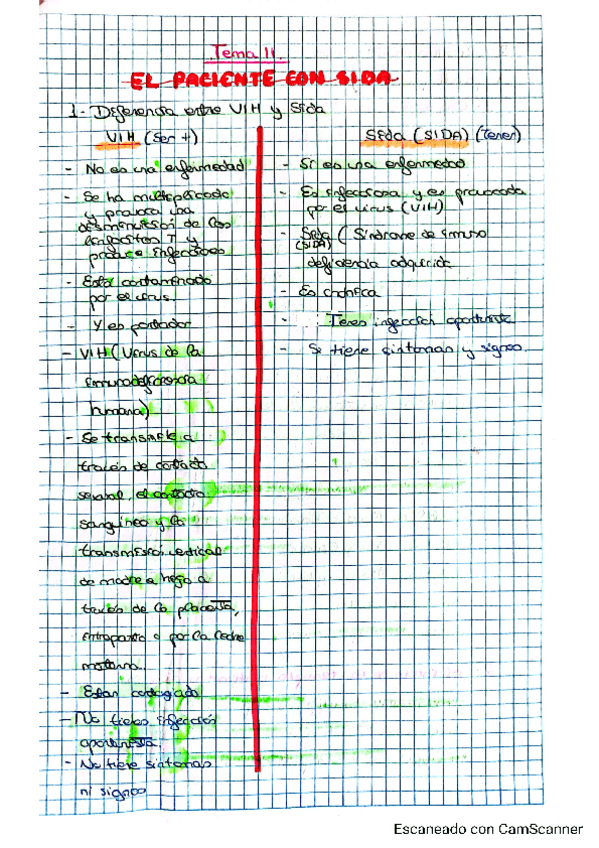 Tema 11.
EL PACIENTE CON SIDA
1- Diferencia entre VIH y Sida
VIH (Ser +)
- No es una enfermedad
- Se ha multiplicado
y provoca una
de los
linfocitos T y
produce infecciones
- Esta contaminado
por el virus.
- Y es portador
- VIH (Virus de la
inmunodeficiencia
humana)
- Se transmite a
través de contacto
sexual, el contacto
sanguíneo y la
vertical
de madre a hijo a
través de la placenta,
o por la leche
materna.
- Estan contagiado
- No tienes infección
oportunista.
- No tiene sintomas
ni signos
Sida (SIDA) (Tener)
- Si es una enfermedad
- Es infecciosa y es provocada
por el virus (VIH)
- Sida ( Sindrome de inmuno
(SIDA)
deficiencia adquirida
- Es crónica
- Tenes infección
- Si tiene sintomas y signos.
Escaneado con CamScanner